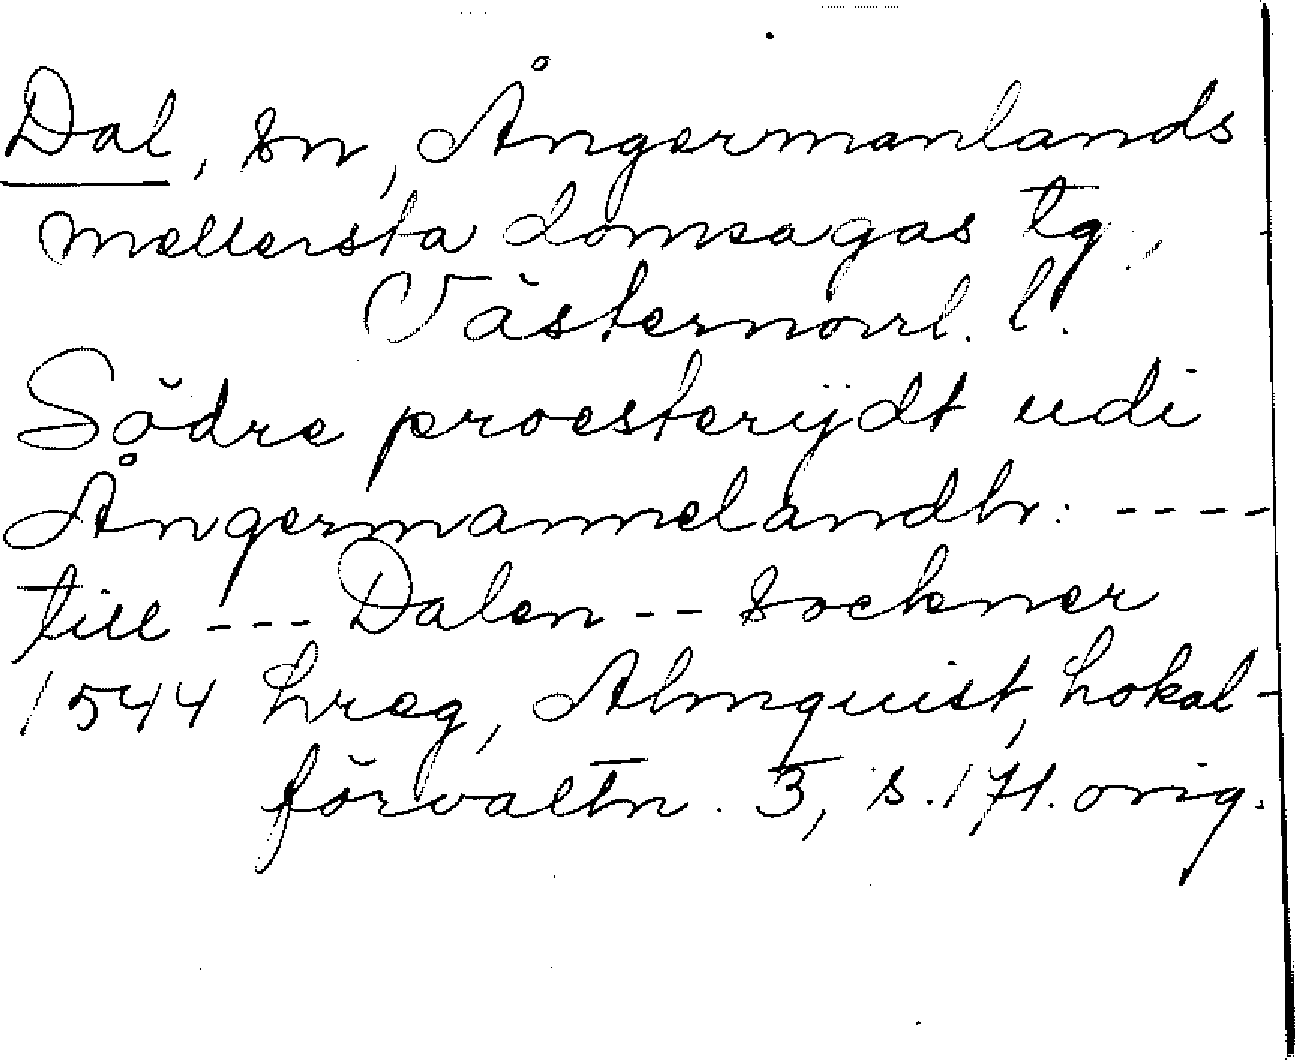 Dal, sn, Ångermanlands
mellersta domsagas tg.,
Västernorrl. l.
Södre proesterijdt udi
Ångermannelandh: ----
till --- Dalen -- sockner
1544 hreg, Almquist, Lokal-
förvaltn. 3, s. 171. orig.